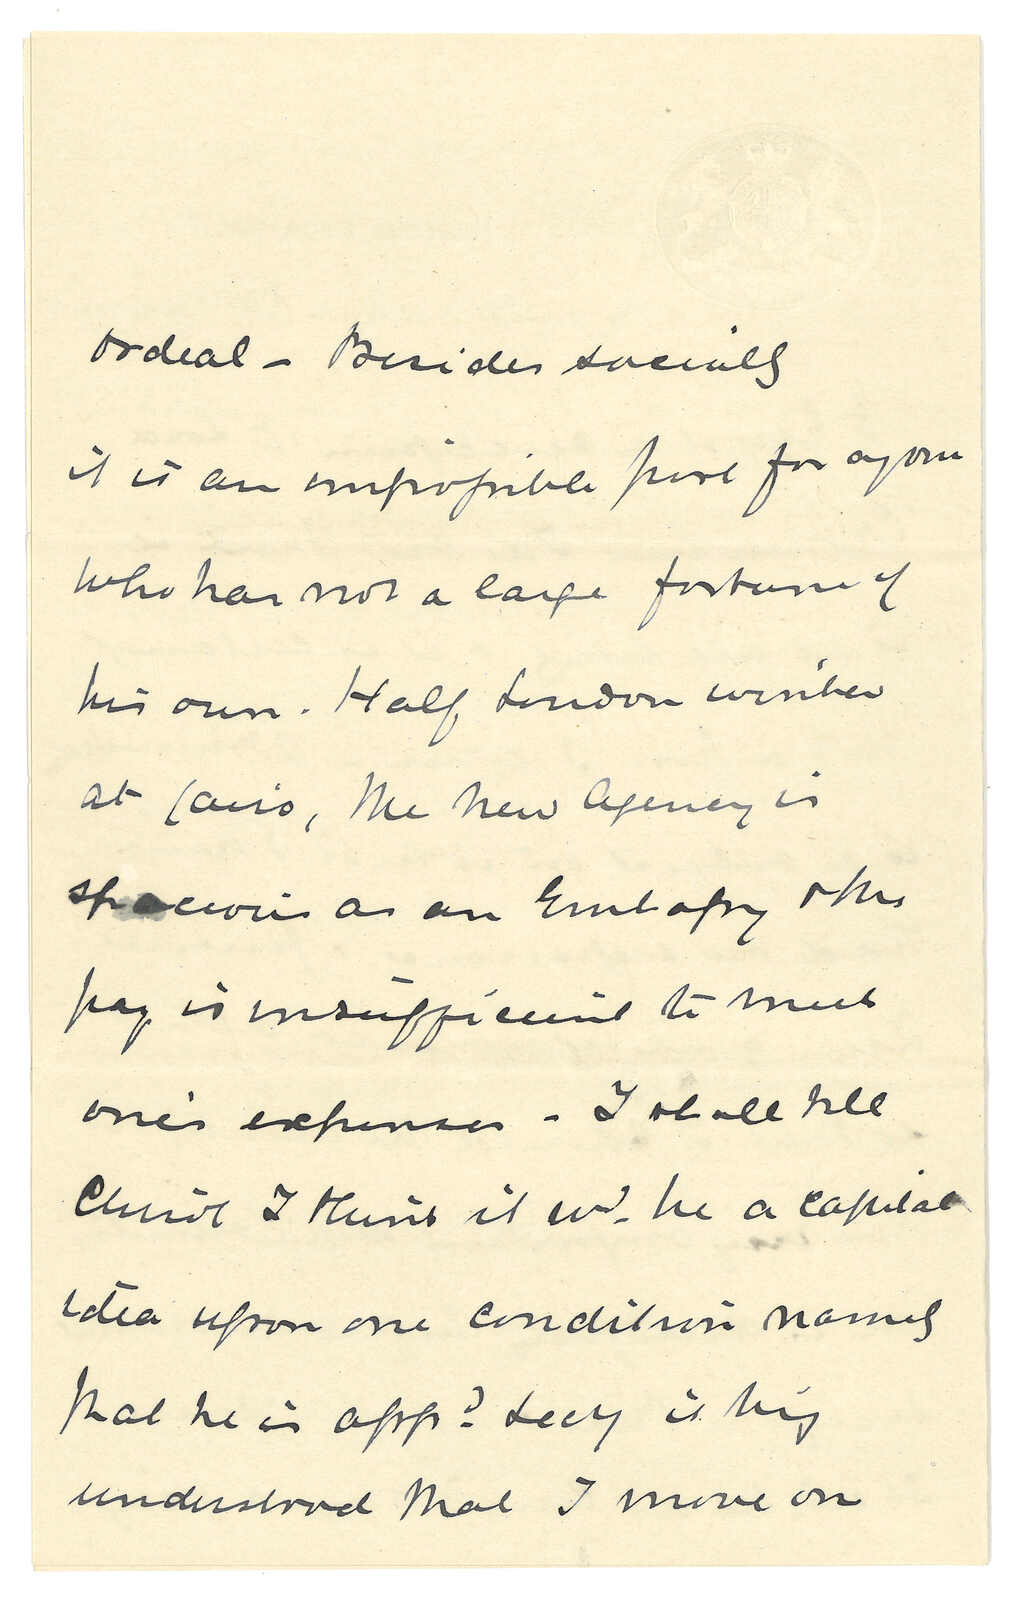 ordeal – Besides socially
it is an impossible post for anyone
who has not a large fortune of
his own. Half London winters
at Cairo, the new Agency is
spacious as an Embassy & the
pay is insufficient to meet
one's expenses – I shall tell
Chirol I think it wd. be a capital
idea upon one condition namely
that he is appd. Secy it being
understood that I move on